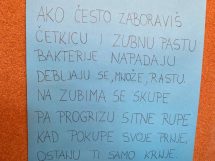 AKO ČESTO ZABORAVIŠ
ČETKICU I ZUBNU PASTU
BAKTERIJE NAPADAJU
DEBLJAJU SE, MNOŽE, RASTU.
NA ZUBIMA SE SKUPE
PA PROGRIZU SITNE RUPE
KAD POKUPE SVOJE PRNJE,
OSTANU TI SAMO KRNJE.